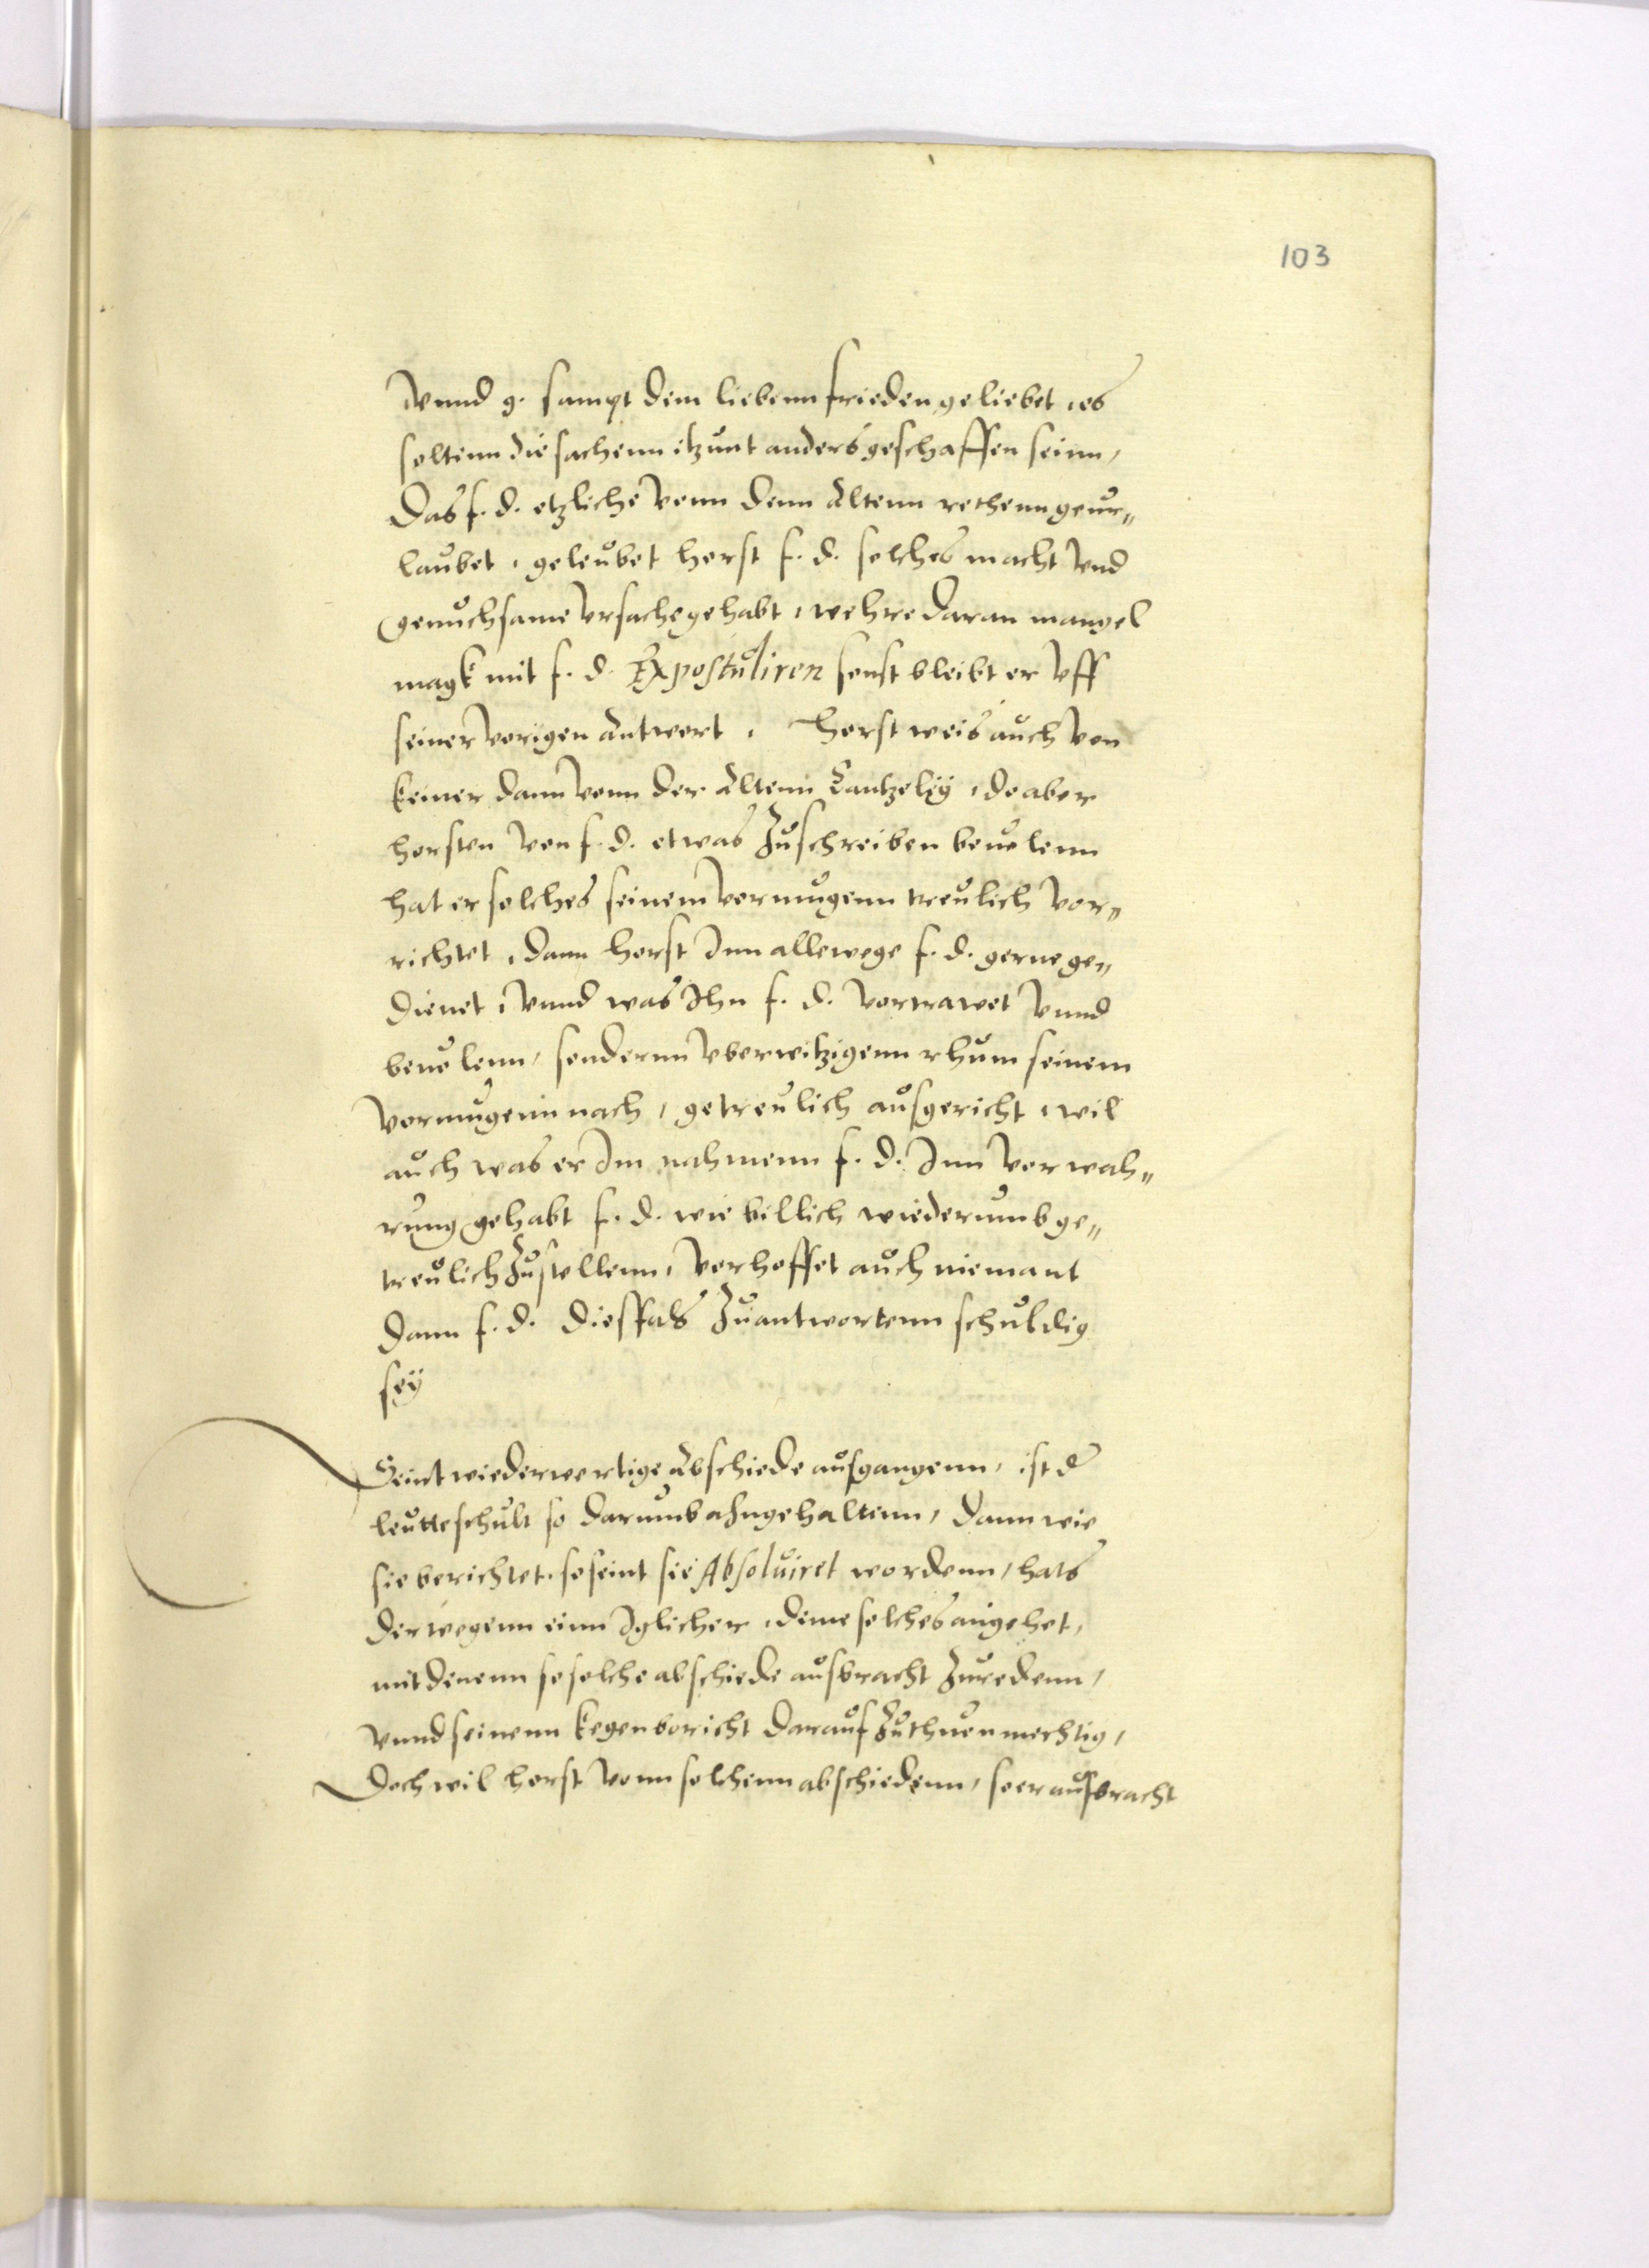 103
vnnd g. sampt dem liebenn frieden geliebet, es
soltenn die sachenn itzunt anders geschaffen seinn,
Das f. d. etzliche vonn denn Altenn rethenn geur„
laubet, geleubet horst f. d. solches macht vnd
genuchsame vrsache gehabt, wehre daran mangel
magk mit f. d. Expostuliren sonst bleibt er vff
seiner vorigen Antwort. Horst weis auch von
keiner dann vonn der Altenn Cantzeleÿ, do aber
horsten von f. d. etwas Zuschreiben beuolenn
hat er solches seinem vermugenn treulich vor„
richtet, dann horst Inn allewege f. d. gerne ge„
dienet, vnnd was Ihn f. d. vortrawet vnnd
beuolenn, sondernn vberwitzigenn rhum seinem
vormugenn nach, getreulich ausgericht, wil
auch was er Im nahmenn f. d. Inn verwah„
rung gehabt f. d. wie billich wiederumb ge„
treulich Zustellenn, verhoffet auch niemant
dann f. d. diesfals Zuantwortenn schuldig
seÿ
Seint wiederwertige Abschiede ausgangenn, ist d
leutte schult so darumb ahngehaltenn, dann wie
sie berichtet, so seint sie Absoluiret wordenn, hats
derwegenn einn Iglicher, deme solches angehet,
mit denenn so solche abschiede ausbracht Zuredenn,
vnnd seinenn kegenbericht darauf Zuthuen mechtig,
Doch wil horst vonn solchenn abschiedenn, so er ausbracht